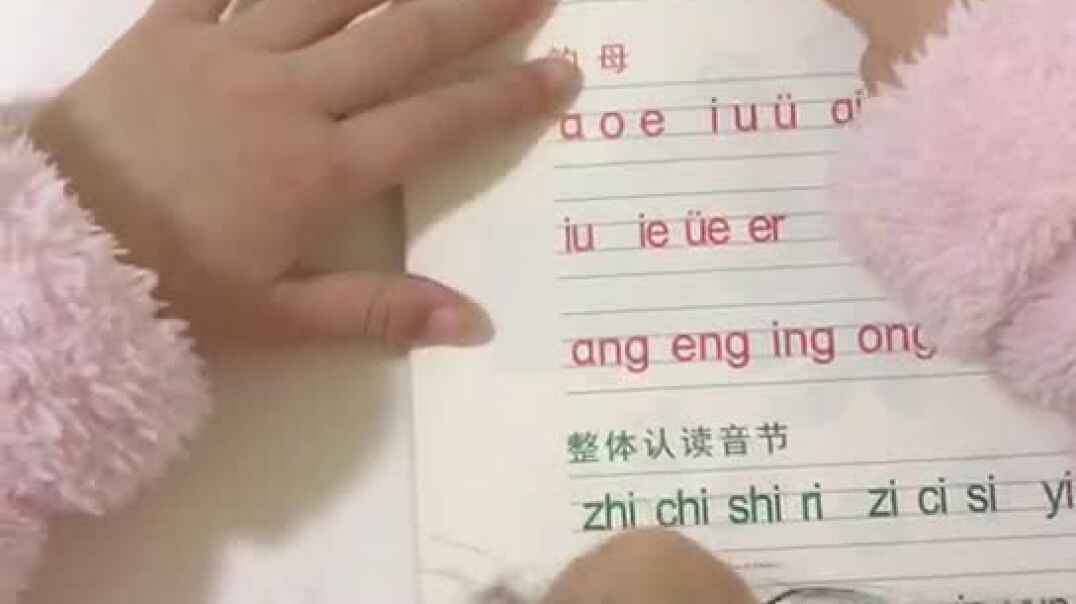 韵母
a o e i u ü ai
iu ie üe er
ang eng ing ong
整体认读音节
zhi chi shi ri zi ci si yi